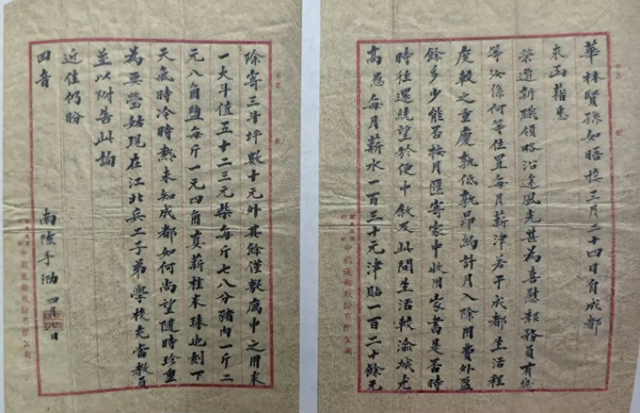 華林賢孫如晤接三月二十四日自成都
來函藉悉
榮遷新職領略沿途風光甚為喜慰報務員有幾
等汝係何等位置每月薪津若干成都生活程
度較之重慶孰低孰昂約計月入除用費外盈
餘多少能否按月匯寄家中收用家書是否時
時往還統望於便中敘及此間生活較渝城尤
高愚每月薪水一百三十元津貼一百二十餘元
除寄三斗坪數十元外其餘僅敷腐中之用米
一大斗值五十二三元柴每斤七八分豬肉一斤二
元八角鹽每斤一元四角真薪桂米珠也刻下
天氣時冷時熱未知成都如何尚望隨時珍重
為要瑩姑現在江北兵工子弟學校充當教員
並以附告此詢
近佳仍盼
回音
南陔手泐 四月 日